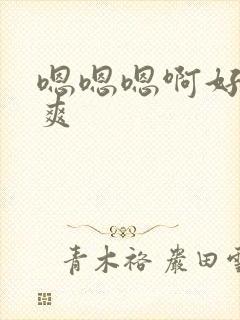 嗯嗯嗯啊好
爽
青木裕 岩田雪